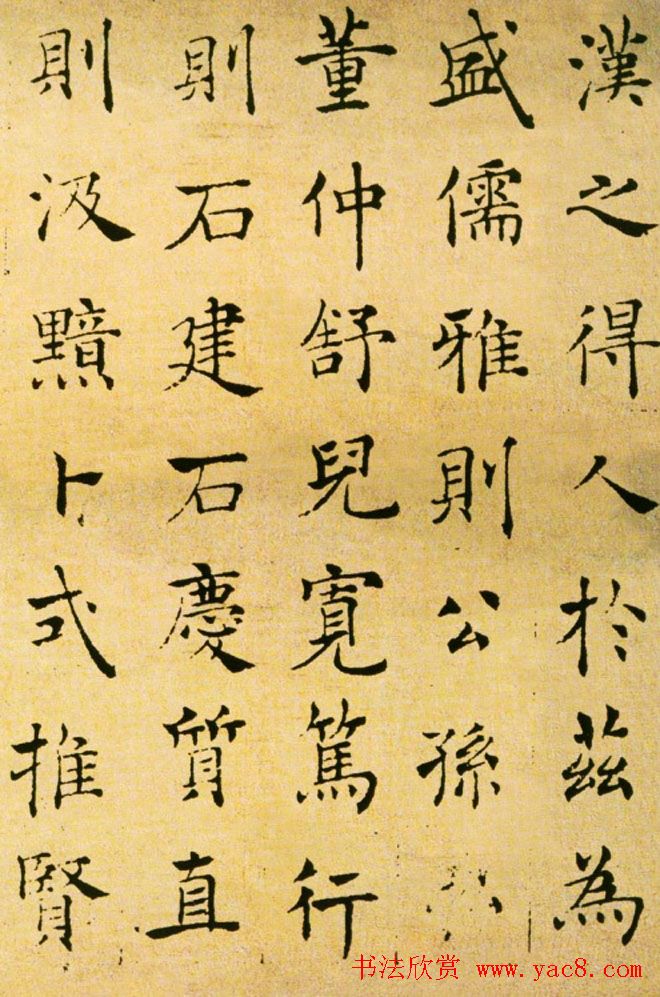 漢之得人於茲為
盛儒雅則公孫
董仲舒兒寬篤行
則石建石慶質直
則汲黯卜式推賢
书法欣赏 www.yac8.com